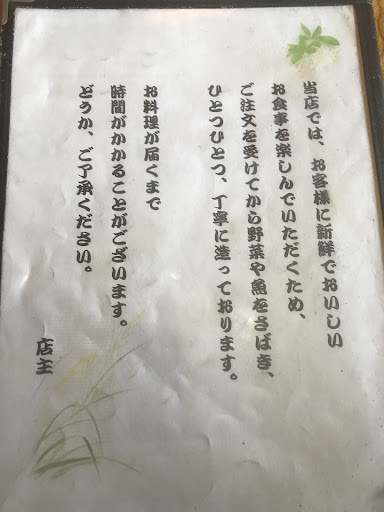 当店では、お客様に新鮮でおいしい
お食事を楽しんでいただくため、
ご注文を受けてから野菜や魚をさばき、
ひとつひとつ、丁寧に造っております。
お料理が届くまで
時間がかかることがございます。
どうか、ご了承ください。
店主